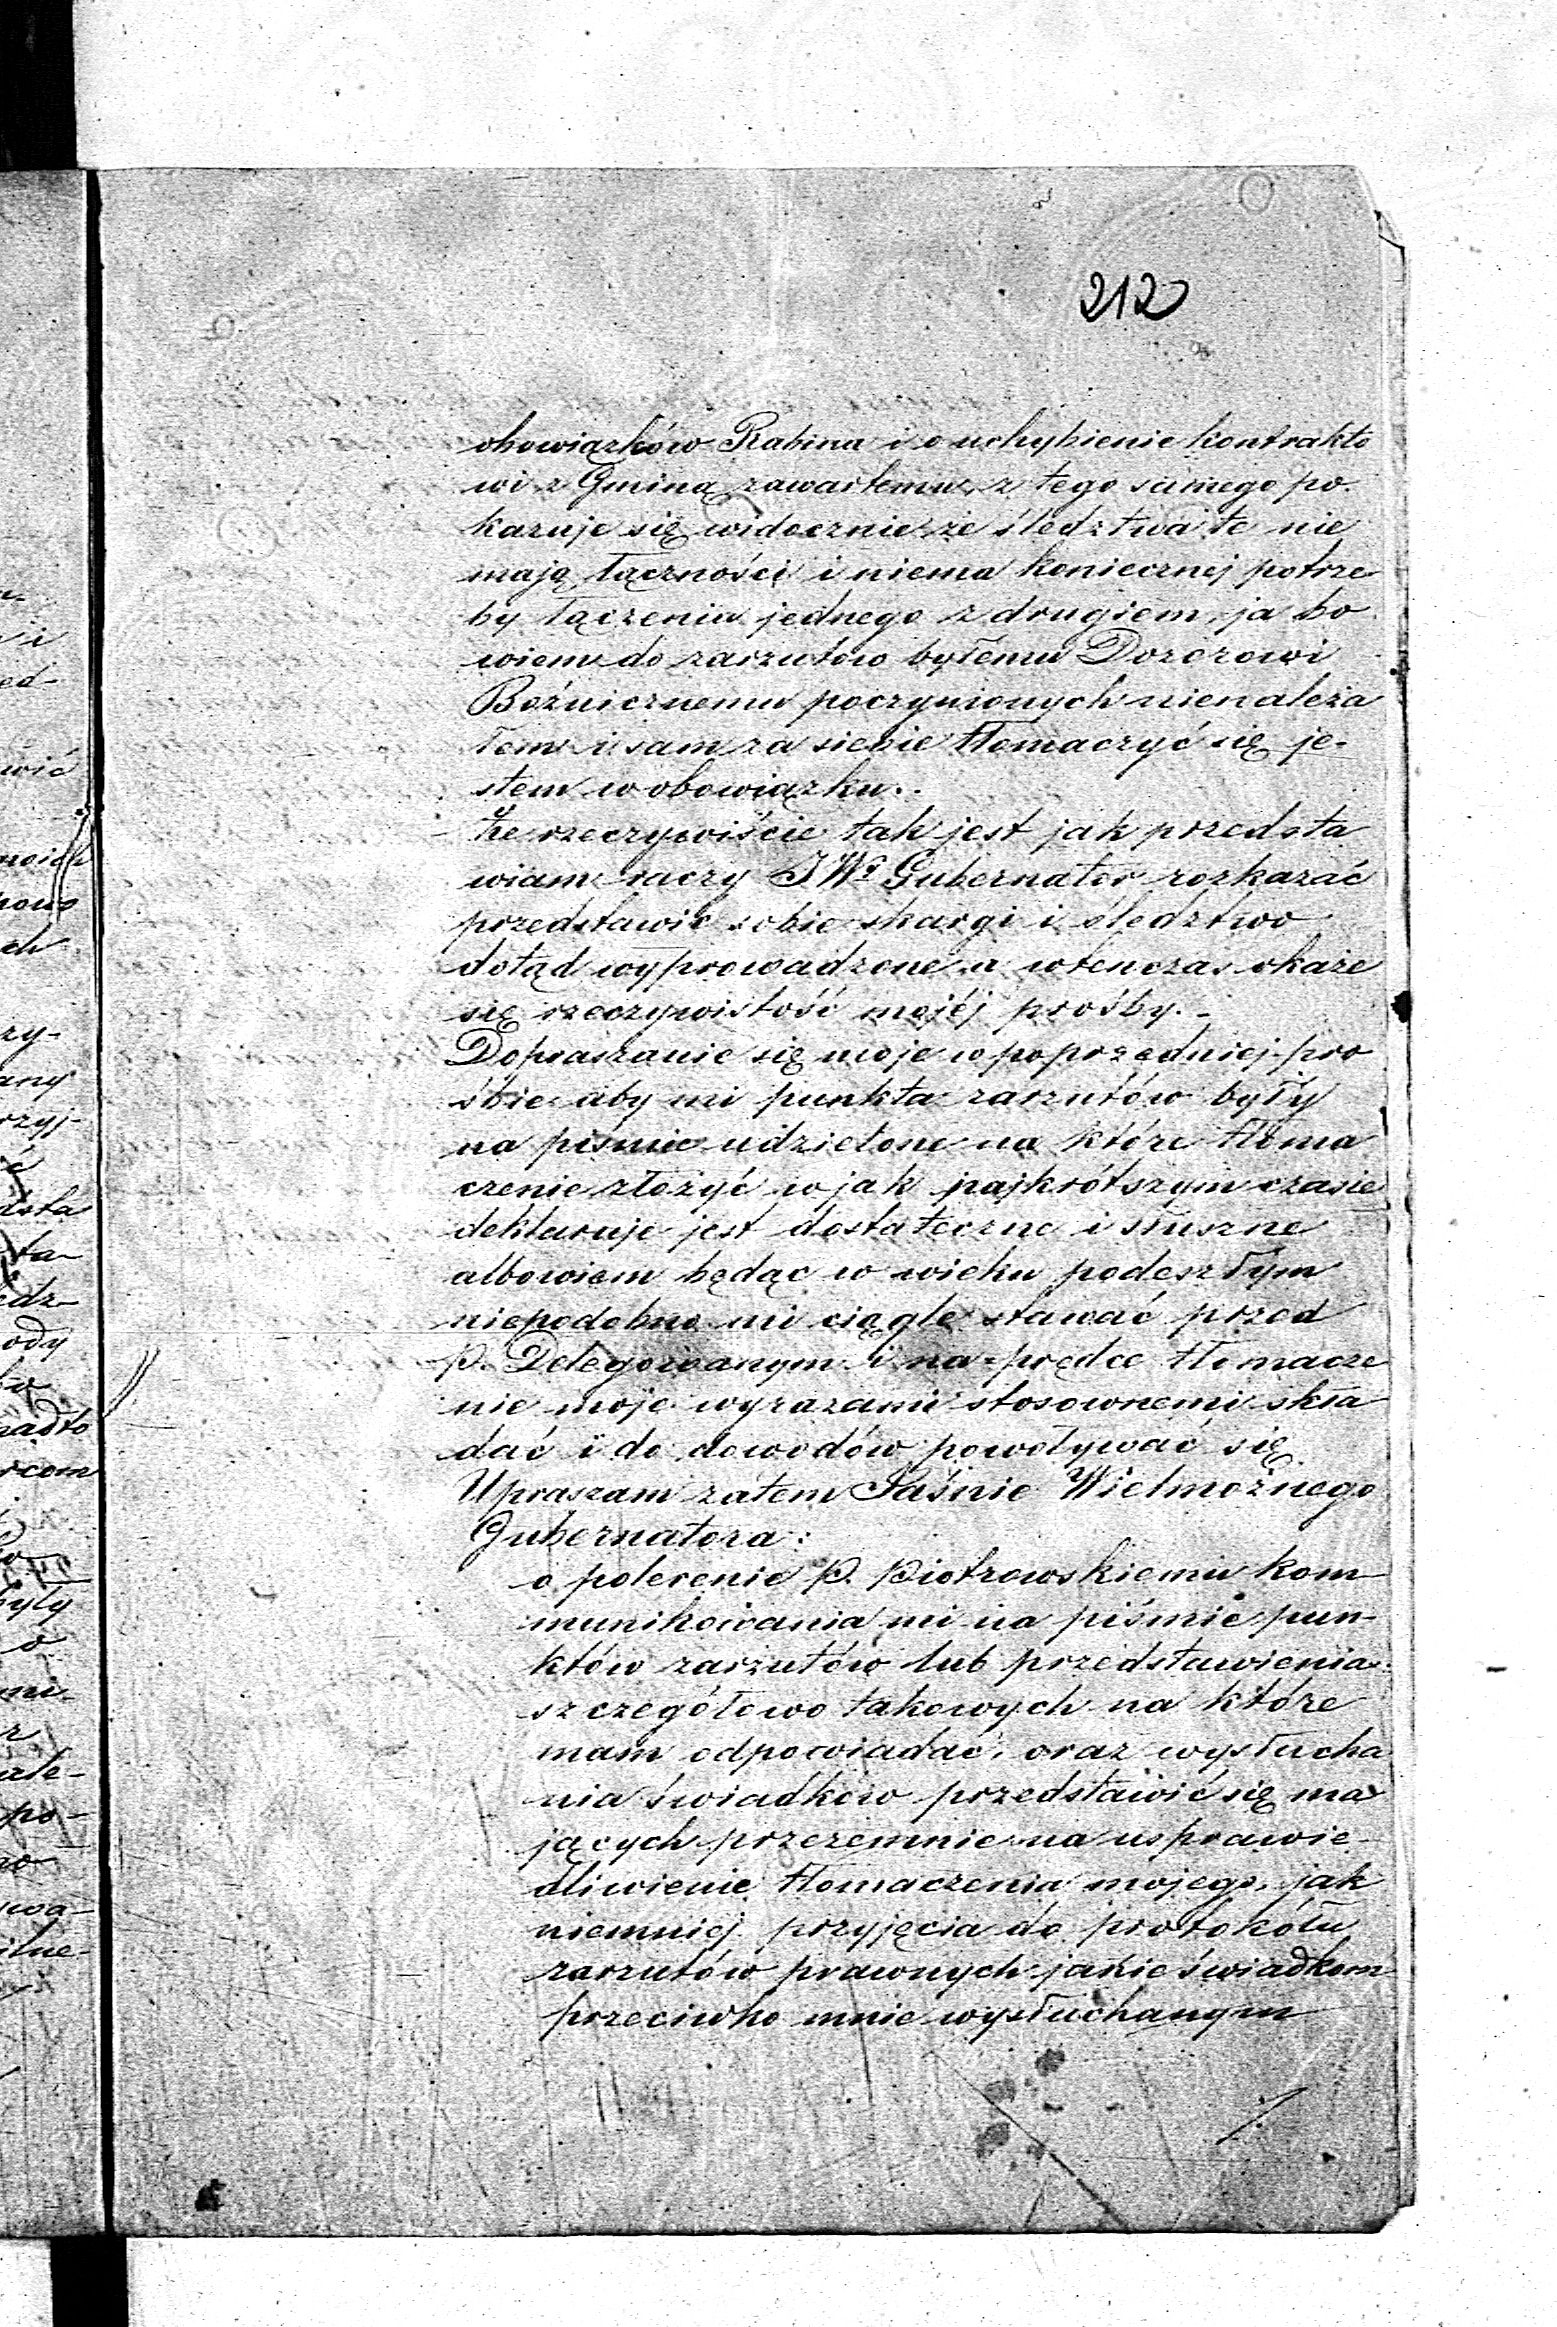 212
obowiązków Rabina i o uchybienie kontrakto
wi z Gminą zawartemu, z tego samego po-
kazuje się widocznie że śledztwa te nie
mają łączności i niema koniecznej potrze-
by łączenia jednego z drugiem, ja bo
wiem do zarzutów byłemu Dozorowi
Bożnicznemu poczynionych nienależa
łem i sam za siebie tłomaczyć się je-
stem w obowiązku.
Że rzeczywiście tak jest jak przedsta
wiam raczy JWy Gubernator rozkazać
przedstawić sobie skargi i śledztwo
dotąd wyprowadzone a wtenczas okaże
się rzeczywistość mojéj prośby.-
Dopraszanie się moje w poprzedniej pro
śbie aby mi punkta zarzutów były
na piśmie udzielone na które tłoma
czenie złożyć w jak najkrótszym czasie
deklaruje jest dostateczne i słuszne
albowiem będąc w wieku podeszłym
niepodobno mi ciągle stawać przed
P. Delegowanym i na-prędce tłomacze
nie moje wyrazami stosownemi skła-
dać i do dowodów powoływać się
Upraszam zatem Jaśnie Wielmożnego
Gubernatora:
o polecenie P. Piotrowskiemu kom-
munikowania mi na piśmie pun-
któw zarzutów lub przedstawienia
szczegółowo takowych na które
mam odpowiadać, oraz wysłucha
nia świadków przedstawić się ma
jących przezemnie na usprawie-
dliwienie tłomaczenia mojego, jak
niemniej przyjęcia do protokółu
zarzutów prawnych jakie świadkom
przeciwko mnie wysłuchanym